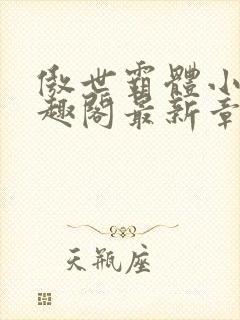 傲世霸體小
趣閣最新章
天瓶座